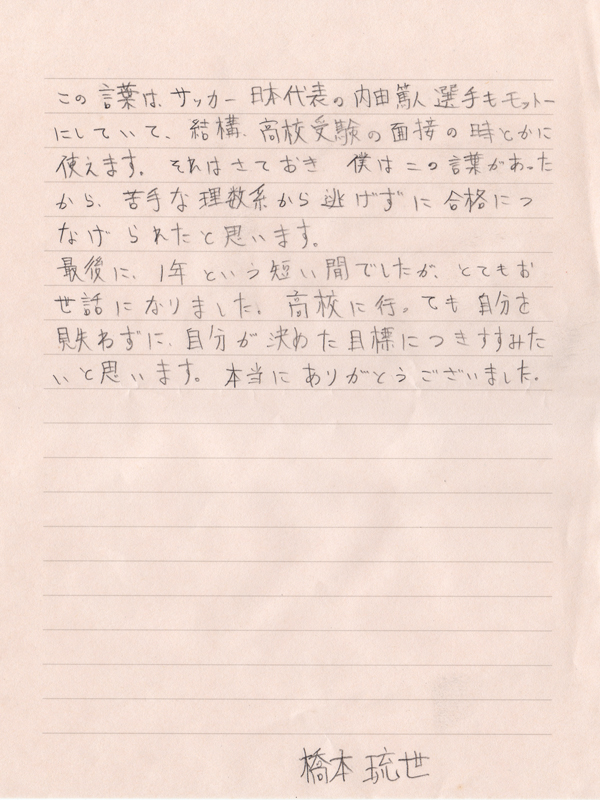 この言葉は、サッカー日本代表の内田篤人選手もモットー
にしていて、結構、高校受験の面接の時とかに
使えます。それはさておき 僕はこの言葉があった
から、苦手な理数系から逃げずに合格につ
なげられたと思います。
最後に、1年という短い間でしたが、とてもお
世話になりました。高校に行っても自分を
見失わずに、自分が決めた目標につきすすみた
いと思います。本当にありがとうございました。
橋本琉世